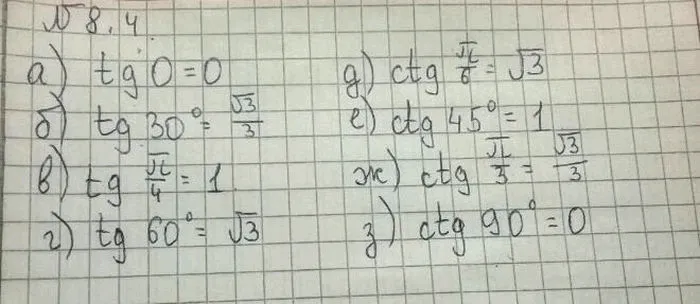 № 8.4.
а) tg 0 = 0
б) tg 30° = √3/3
в) tg π/4 = 1
г) tg 60° = √3
д) ctg π/6 = √3
е) ctg 45° = 1
ж) ctg π/3 = √3/3
з) ctg 90° = 0